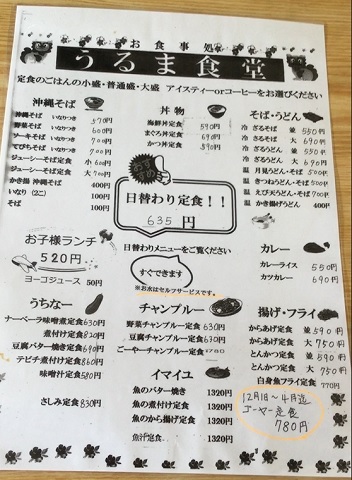 お食事処
うるま食堂
定食のごはんの小盛・普通盛・大盛 アイスティーorコーヒーをお選びください
沖縄そば
沖縄そば いなりつき 570
野菜そば いなりつき 600
ソーキそば いなりつき 700
てびちそば いなりつき 700
ジューシーそば定食 小 600
ジューシーそば定食 大 700
かき揚 沖縄そば 400円
いなり (2こ) 100円
そば 100円
丼物
海鮮丼定食
まぐろ丼定食
かつ丼定食 690円
そば・うどん
冷 ざるそば 並 550円
冷 ざるそば 大 690円
冷 ざるうどん 並 550円
冷 ざるうどん 大 690円
温 月見うどん・そば 500円
温 きつねうどん・そば 500円
温 えび天うどん・そば 700円
温 かき揚げうどん 400円
日替わり定食!!
635円
日替わりメニューをご覧ください
すぐできます
※お水はセルフサービスです。
お子様ランチ
520円
ヨーゴジュース 50円
カレー
カレーライス 550円
カツカレー 690円
うちなー
ナーベーラ味噌煮定食 630円
煮付け定食 820円
豆腐バター焼定食 690円
テビチ煮付け定食 860円
味噌汁定食 580円
さしみ定食 830円
チャンプルー
野菜チャンプルー定食 630円
豆腐チャンプルー定食 630円
ごーやーチャンプルー定食 780円
イマイユ
魚のバター焼き 1320円
魚の煮付け定食 1320円
魚のから揚げ定食 1320円
魚汁定食 1320円
揚げ・フライ
からあげ定食 並 590円
からあげ定食 大 750円
とんかつ定食 並 590円
とんかつ定食 大 750円
白身魚フライ定食 770円
12月1日～4月迄
ゴーヤー定食
780円